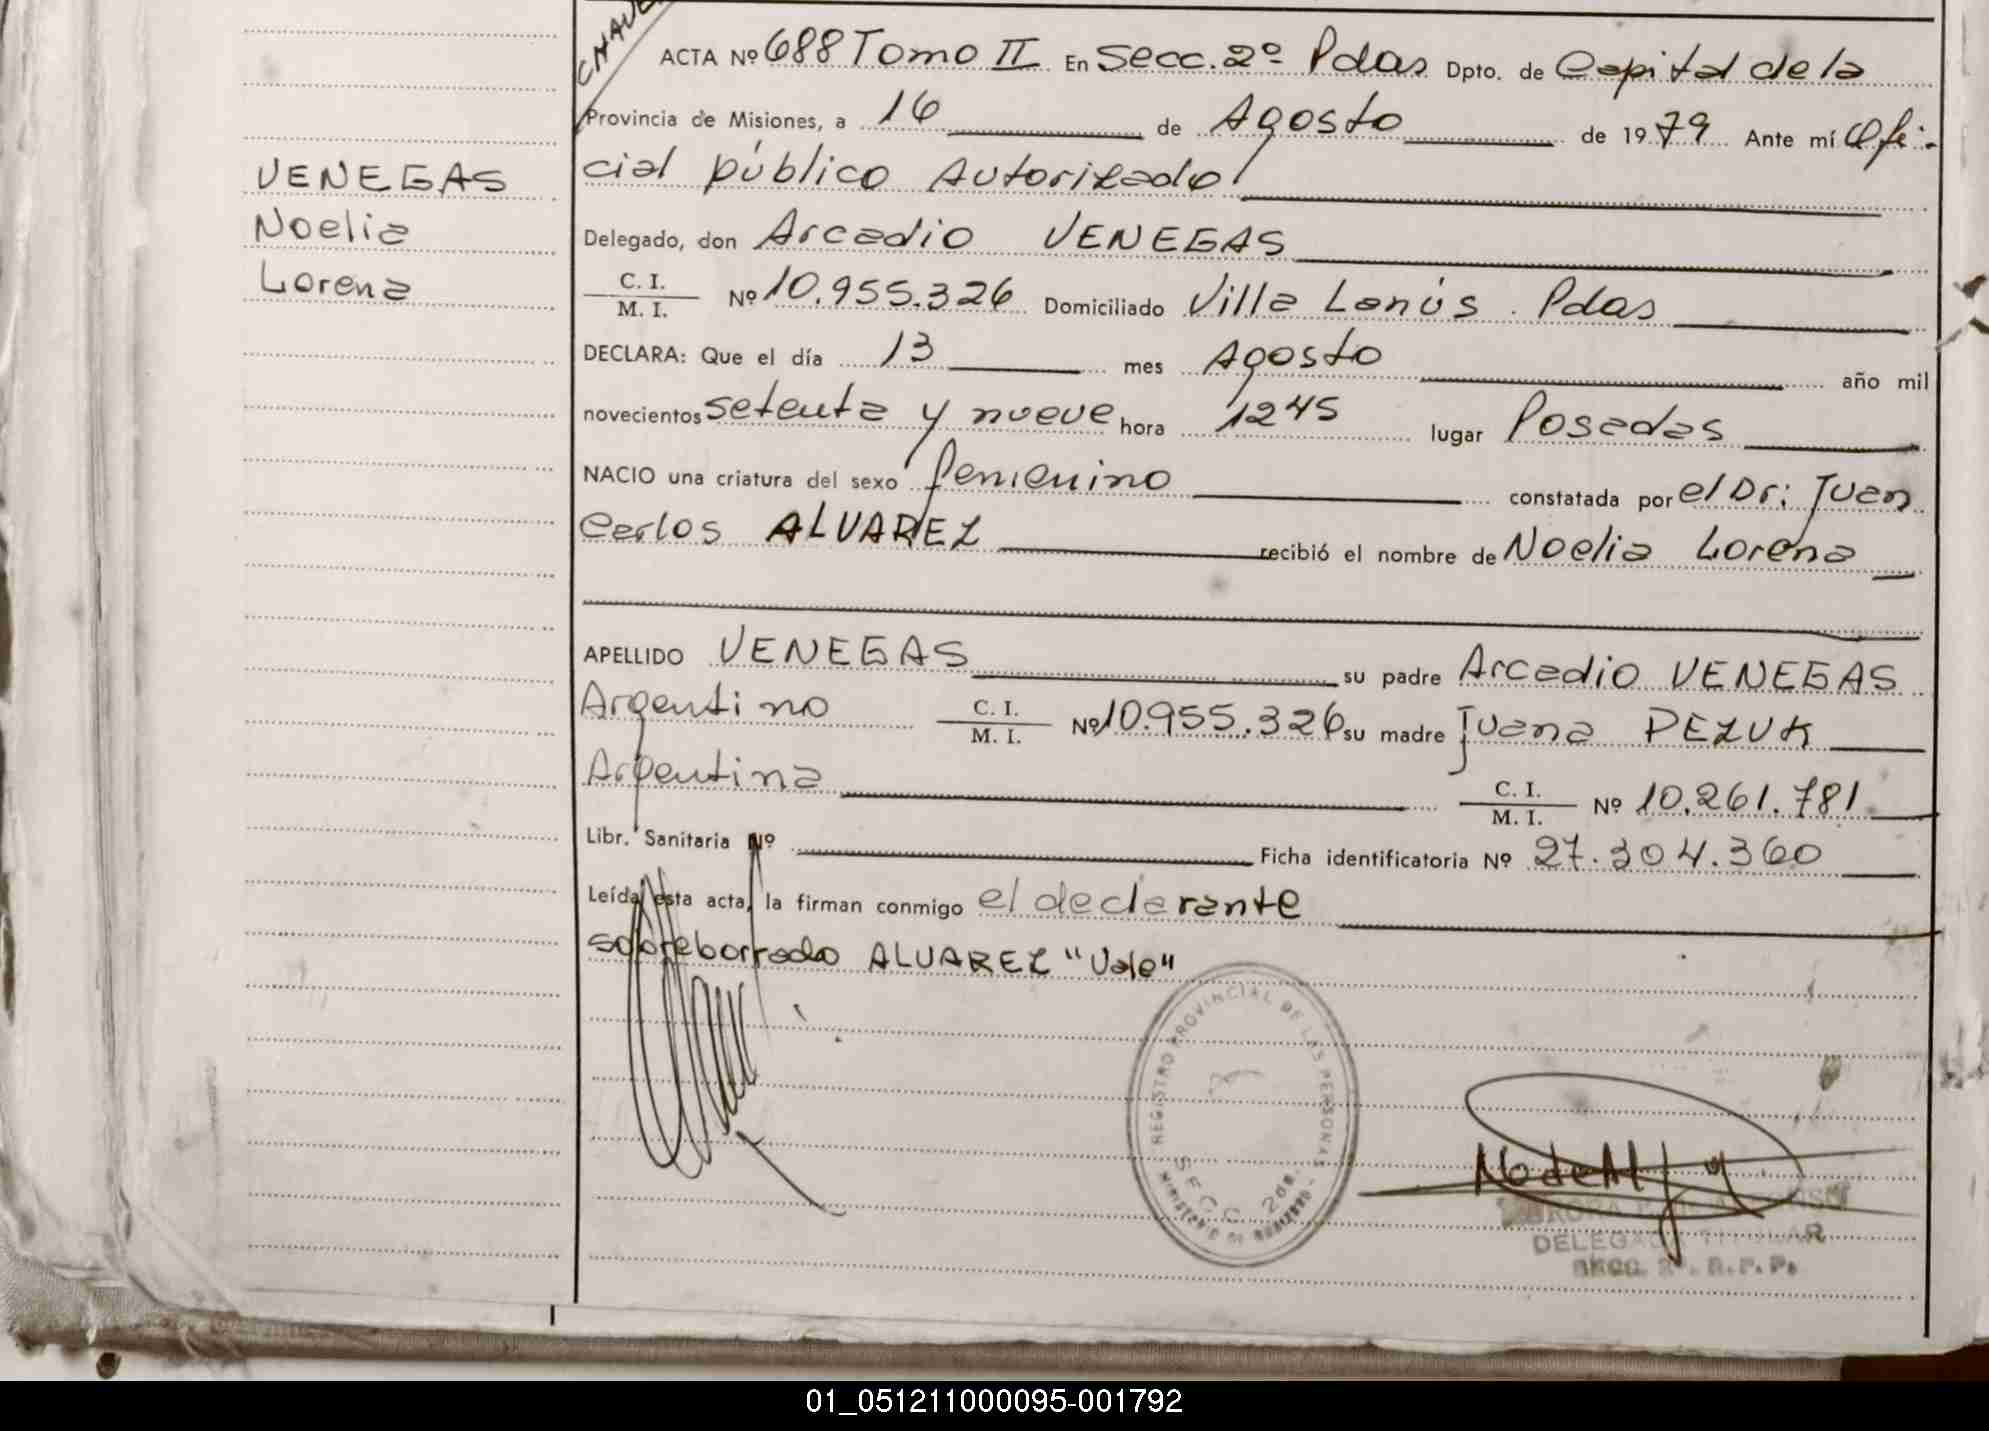 ACTA Nº 688 Tomo II En Secc. 2º Pdas Dpto. de Capital de la
Provincia de Misiones, a 16 de Agosto de 1979 Ante mí Ofi-
cial público Autorizado
VENEGAS
Noelia
Lorena
Delegado, don Arcadio VENEGAS
C. I.
M. I. Nº 10.955.326 Domiciliado Villa Lanús. Pdas
DECLARA: Que el día 13 mes Agosto año mil
novecientos setenta y nueve hora 1245 lugar Posadas
NACIO una criatura del sexo femenino constatada por el Dr: Juan
Carlos ALVAREZ recibió el nombre de Noelia Lorena
APELLIDO VENEGAS su padre Arcadio VENEGAS
Argentino C. I.
M. I. Nº 10.955.326 su madre Juana PEZUK
Argentina C. I.
M. I. Nº 10.261.781
Libr. Sanitaria Nº Ficha identificatoria Nº 27.304.360
Leída esta acta, la firman conmigo el declarante
sobreborrado ALVAREZ "Vale"
REGISTRO PROVINCIAL DE LAS PERSONAS
SECC. 2da.
MINISTERIO DE GOBIERNO
DELEGADA TITULAR
SECC. 2ª. R. P. P.
01_051211000095-001792